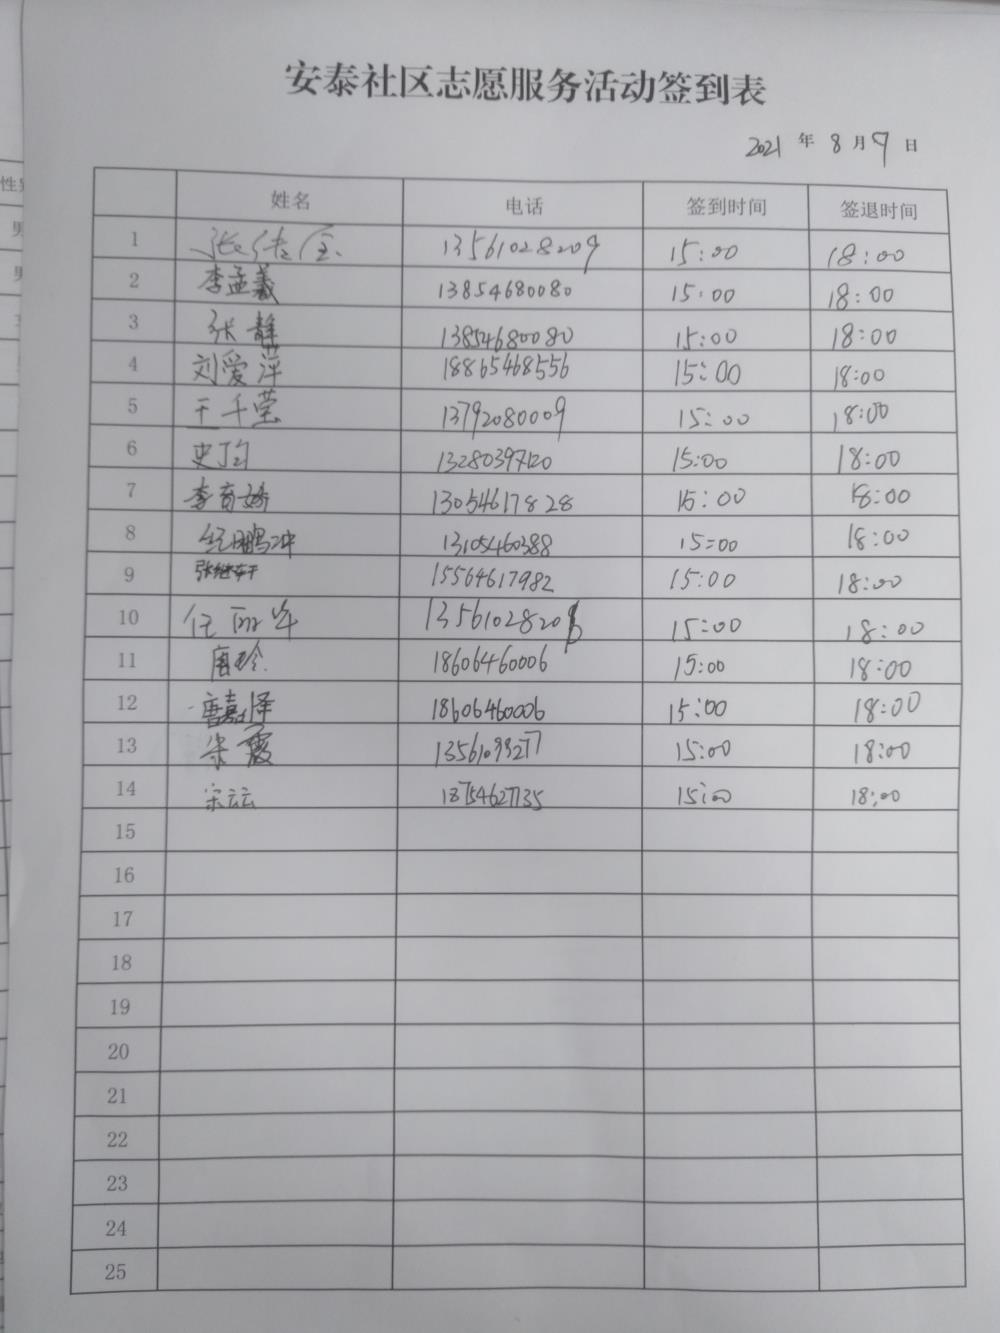 安泰社区志愿服务活动签到表
2021 年 8 月 9 日
姓名 电话 签到时间 签退时间
1 张传金 13561028209 15:00 18:00
2 李孟羲 13854680080 15:00 18:00
3 张静 13854680080 15:00 18:00
4 刘爱萍 18865468556 15:00 18:00
5 王千莹 13792080009 15:00 18:00
6 史均 13280397120 15:00 18:00
7 李育娇 13054617828 15:00 18:00
8 纪鹏冲 13105460388 15:00 18:00
9 张继轩 15564617982 15:00 18:00
10 任丽华 1356102820 15:00 18:00
11 唐玲 18606460006 15:00 18:00
12 唐嘉泽 18606460006 15:00 18:00
13 宋霞 13561093277 15:00 18:00
14 宋云云 18754627135 15:00 18:00
15
16
17
18
19
20
21
22
23
24
25